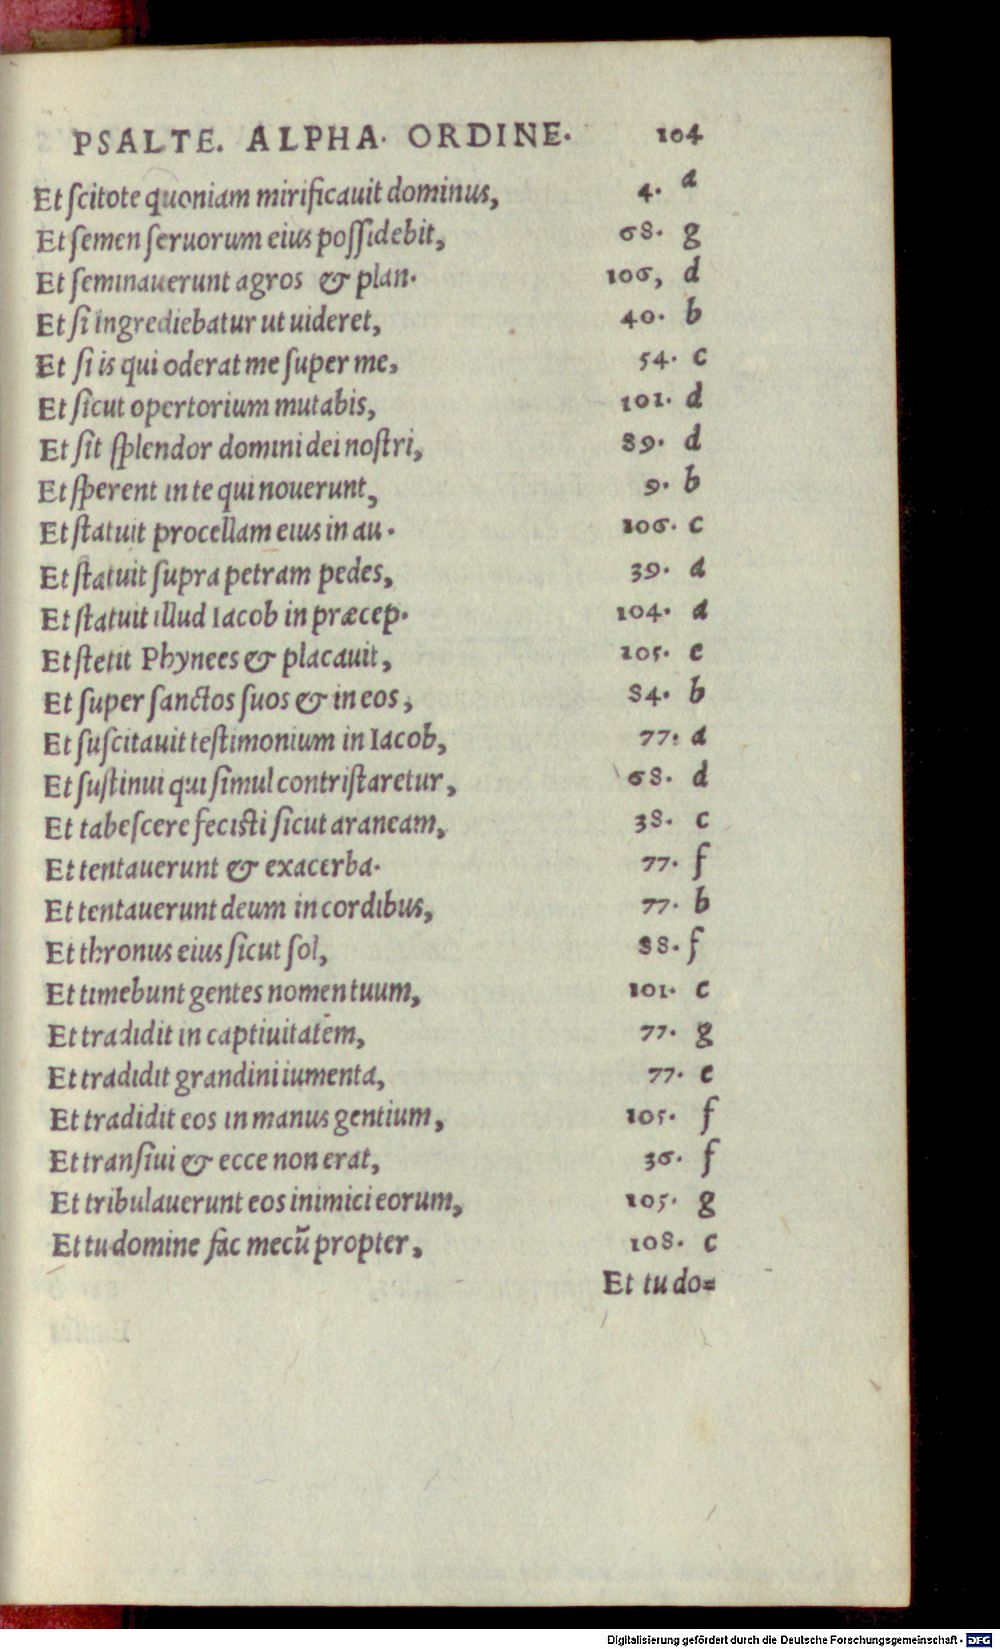 PSALTE. ALPHA. ORDINE. 104
Et ſcitote quoniam mirificauit dominus, 4. a
Et ſemen ſeruorum eius poſſidebit, 68. g
Et ſeminauerunt agros & plan. 106, d
Et ſi ingrediebatur ut uideret, 40. b
Et ſi is qui oderat me ſuper me, 54. c
Et ſicut opertorium mutabis, 101. d
Et ſit ſplendor domini dei noſtri, 89. d
Et ſperent in te qui nouerunt, 9. b
Et ſtatuit procellam eius in au. 106. c
Et ſtatuit ſupra petram pedes, 39. a
Et ſtatuit illud Iacob in præcep. 104. a
Et ſtetit Phynees & placauit, 105. e
Et ſuper ſanctos ſuos & in eos, 84. b
Et ſuſcitauit teſtimonium in Iacob, 77. a
Et ſuſtinui qui ſimul contriſtaretur, 68. d
Et tabeſcere feciſti ſicut araneam, 38. c
Et tentauerunt & exacerba. 77. f
Et tentauerunt deum in cordibus, 77. b
Et thronus eius ſicut ſol, 88. f
Et timebunt gentes nomen tuum, 101. c
Et tradidit in captiuitatem, 77. g
Et tradidit grandini iumenta, 77. e
Et tradidit eos in manus gentium, 105. f
Et tranſiui & ecce non erat, 36. f
Et tribulauerunt eos inimici eorum, 105. g
Et tu domine fac mecũ propter, 108. c
Et tu do=
Digitalisierung gefördert durch die Deutsche Forschungsgemeinschaft - DFG